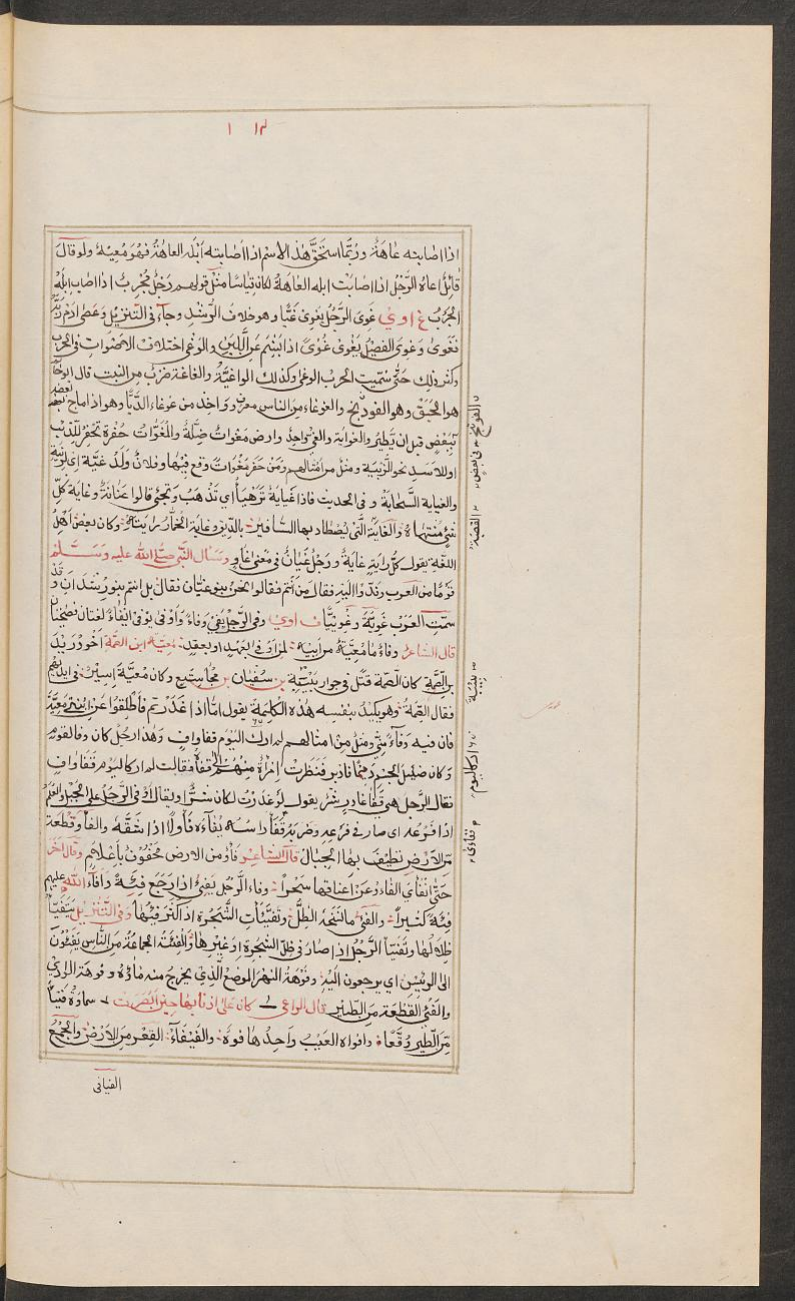 اذا اصابته عاهة وربما استحق هذا الاسم اذا اصابته ابله العاهة فهو معيه ولو قال
قائل اعاه الرجل اذا اصابت ابله العاهة لكان قياسا مثل قولهم رجل مجرب اذا اصاب ابله
الجرب غ اوي غوى الرجل يغوي غيا وهو خلاف الرشد وجاء في التنزيل وعصى ادم ربه
فغوى وغوى الفصيل يغوى غوى اذا بشم عن اللبن والوغى اختلاف الاصوات في الحرب
وكثر ذلك حتى سميت الحرب الوغى وكذلك الواغية والفاغة ضرب من النبت قال ابو حاتم
هو الحبق وهو الفودنج والغوغاء من الناس معروف واخذ من غوغاء الدبا وهو اذا ماج بعضه
ببعض قبل ان يطير والغواية والغي واحد وارض مغوات مضلة والمغوات حفرة تحفر للذئب
او للاسد نحو الزبية ومثل من امثالهم ومن حفر مغوات وقع فيها وفلان ولد غية اي لزنية
والغياية السحابة وفي الحديث فاذا غياية ترهيأ اي تذهب وتجئ قالوا عنانة وغاية كل
شئ منتهاه والغاية التي يصطاد بها وغاية الخمار رايته وكان بعض اهل
اللغة يقول كل راية غاية ورجل غيان في معنى غاو وسأل النبي صلى الله عليه وسلم
قوما من العرب وفدوا اليه فقال من انتم فقالوا نحن بنو غيان فقال بل انتم بنو رشدان وقد
سمت العرب غوية وغويا ف اوي وفى الرجل يفي وفاء واوفى يوفي ايفاء لغتان فصيحتان
قال الشاعر وفاء ما معية من ابيه لمن اوفى بعهد او بعقد معية ابن الصمة اخو دريد
بن الصمة كان الصمة قتل في جوار بيبة بن سفيان بن مجاشع وكان معية اسيرا في ايديهم
فقال الصمة وهو يكيد بنفسه هذه الكلمة يقول اما اذا غدرتم فاطلقوا عن ابني معية
فان فيه وفاء مني ومثل من امثالهم لم ار كاليوم قفا واف وهذا رجل كان وفا لقوم
وكان ضئيل الجسم دميما فادبر فنظرت امرأة منهم الى قفاه فقالت لم ار كاليوم قفا واف
فقال الرجل هي قفا غادر شر يقول لو غدرت لكان شرا ويقال فى الرجل على الجبل والعلم
اذا فرعه اي صار في فرعه وضربه فقأ راسه يفآءه فأوا اذا شقه والفأو قطعة
من الارض تطيف بها الجبال قال الشاعر فأو من الارض محفوف باعلام وقال اخر
حتى انفأى الفأو عن اعناقها سحرا وفاء الرجل يفئ اذا رجع فيئة وافاء الله عليهم
فيئة كثيرا والفئ ما نسخه الظل وتفيأت الشجرة اذا كثر فيئها وفي التنزيل يتفيأ
ظلالها وتفيأ الرجل اذا صار في ظل الشجرة او غيرها والفئة الجماعة من الناس يفيئون
الى الرئيس اي يرجعون اليه وفوهة النهر الموضع الذي يخرج منه ماؤه وفوهة الوادي
والفئ القطعة من الطير قال الراعي كان على اذنابها حين ابصرت سماوة فيئا
من الطير وقعا وافواه الطيب واحدها فوه والفيفاء القفر من الارض والجمع
الفيافي
الفوتنج
في بعض
القصبة
بيبة
لم ار كاليوم